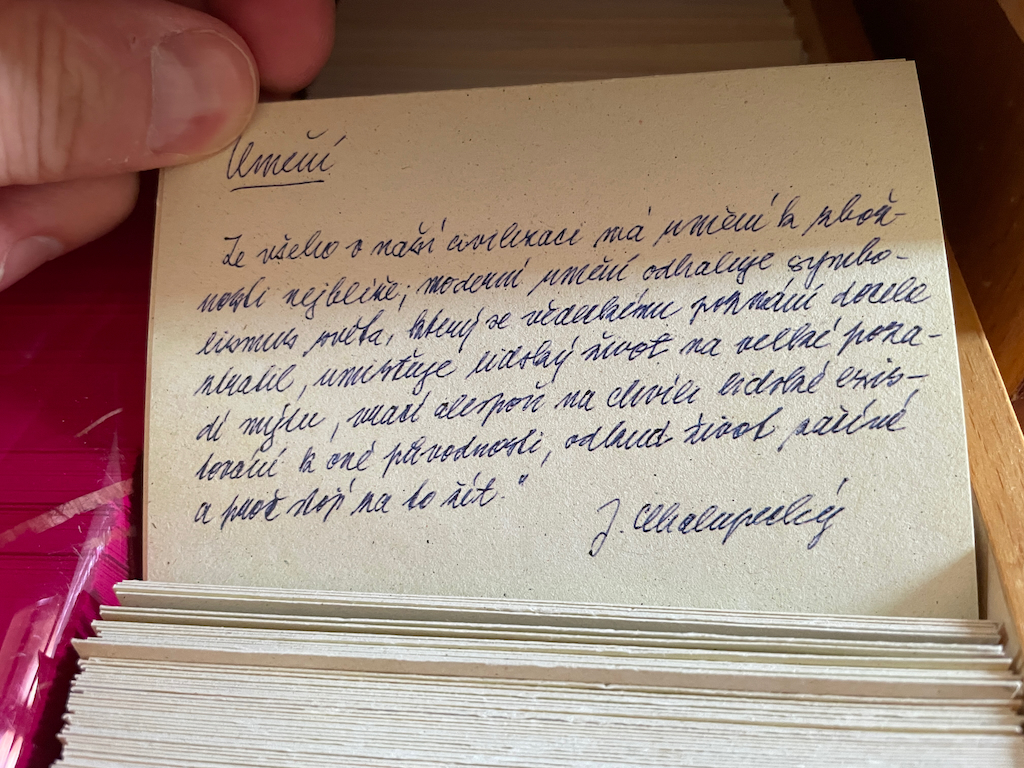 Umění
Ze všeho v naší civilizaci má umění k zbož-
nosti nejblíže; moderní umění odhaluje symbo-
lismus světa, který se vědeckému poznání docela
ztratil, umisťuje lidský život na velké poza-
dí mýtu, vrací alespoň na chvíli lidské exis-
tování k oné původnosti, odkud život začíná
a proč stojí na to žít."
J. Chalupecký